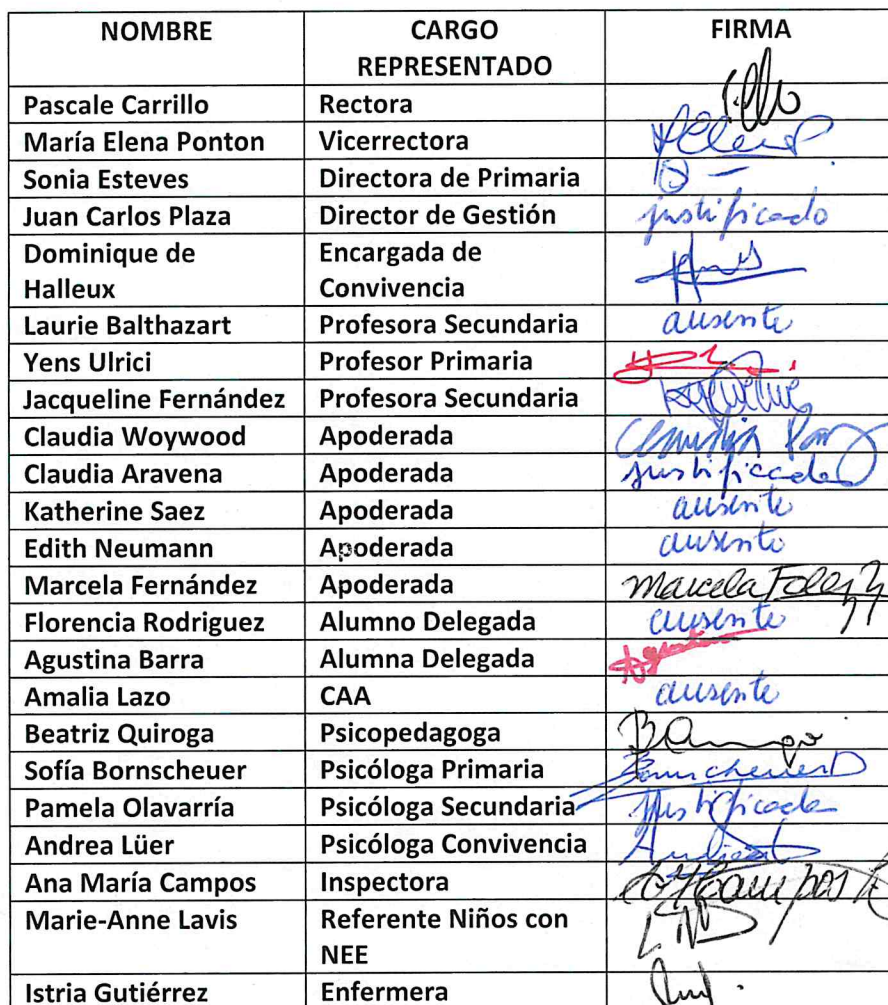 NOMBRE CARGO REPRESENTADO FIRMA
Pascale Carrillo Rectora
María Elena Ponton Vicerrectora
Sonia Esteves Directora de Primaria
Juan Carlos Plaza Director de Gestión justificado
Dominique de Halleux Encargada de Convivencia
Laurie Balthazart Profesora Secundaria ausente
Yens Ulrici Profesor Primaria
Jacqueline Fernández Profesora Secundaria
Claudia Woywood Apoderada
Claudia Aravena Apoderada justificada
Katherine Saez Apoderada ausente
Edith Neumann Apoderada ausente
Marcela Fernández Apoderada Marcela
Florencia Rodriguez Alumno Delegada ausente
Agustina Barra Alumna Delegada
Amalia Lazo CAA ausente
Beatriz Quiroga Psicopedagoga
Sofía Bornscheuer Psicóloga Primaria
Pamela Olavarría Psicóloga Secundaria justificada
Andrea Lüer Psicóloga Convivencia
Ana María Campos Inspectora
Marie-Anne Lavis Referente Niños con NEE
Istria Gutiérrez Enfermera